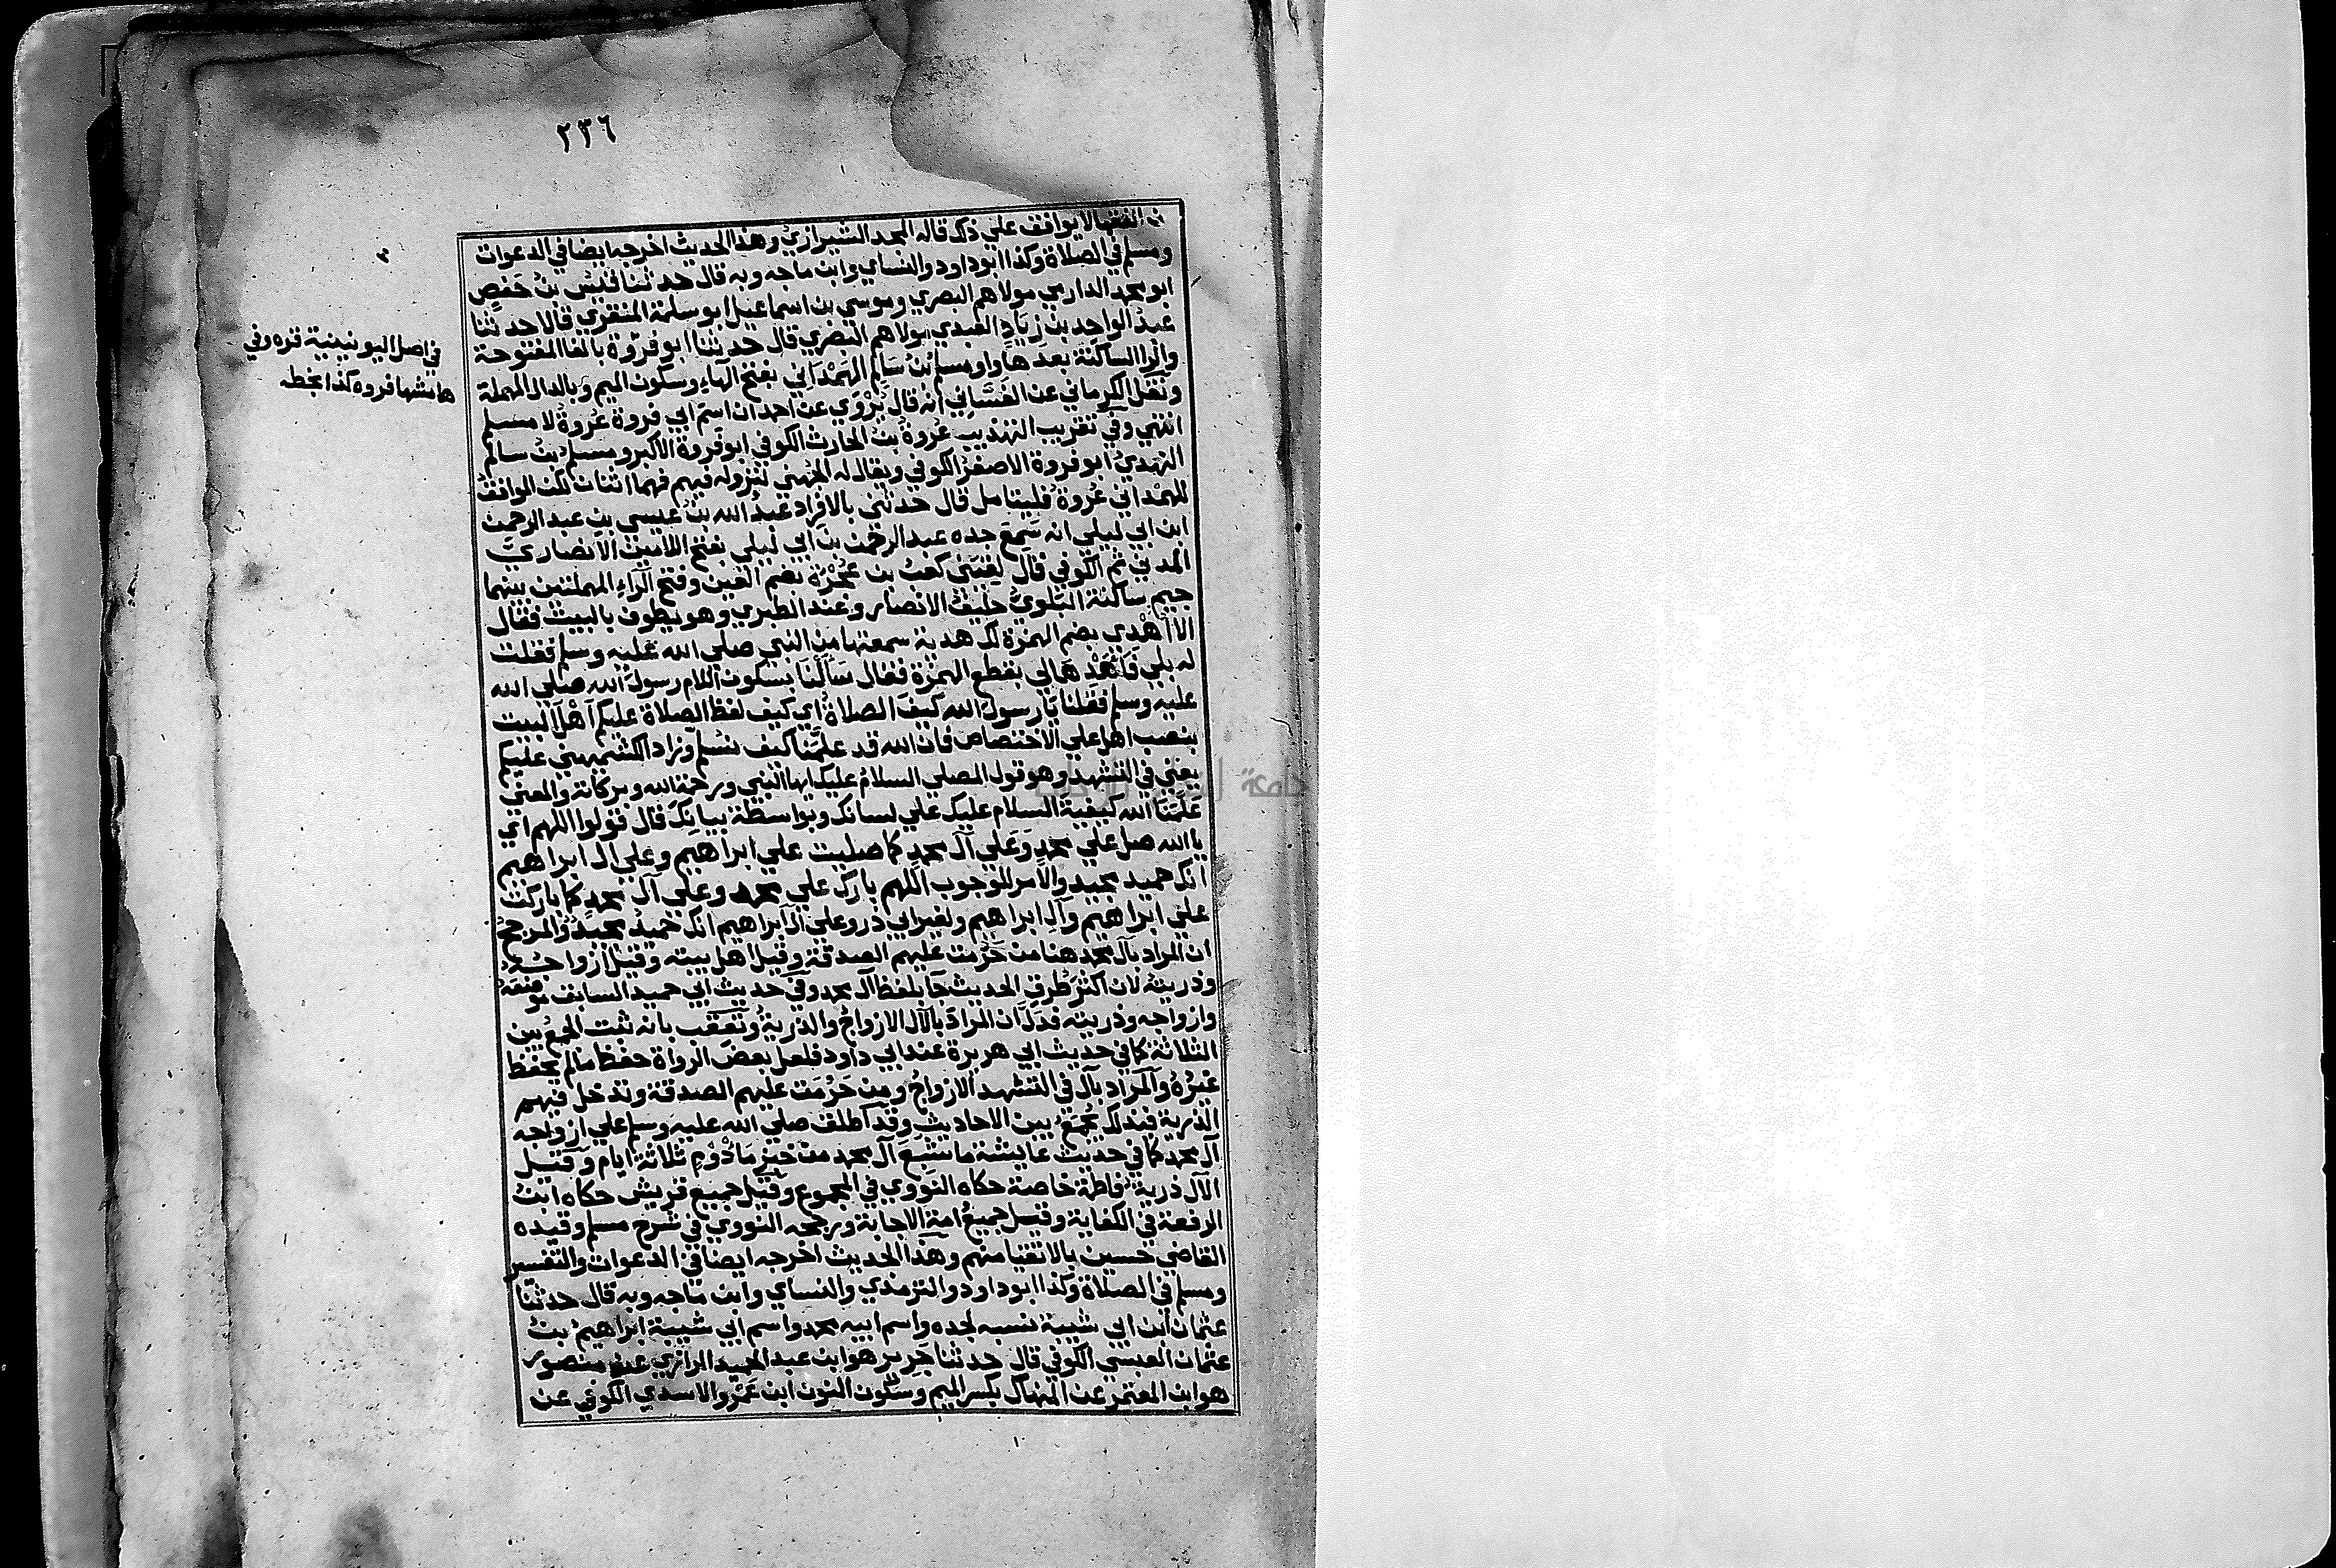 ٢٣٦
الفقها لا يوافق علي ذلك قاله المجد الشيرازي وهذا الحديث اخرجه ايضا في الدعوات
ومسلم في الصلاة وكذا ابو داود والنساي وابن ماجه وبه قال حدثنا قيس بن حفص
ابو محمد الدارمي مولاهم البصري وموسي بن اسماعيل ابو سلمة المنقري قالا حدثنا
عبد الواحد بن زياد العبدي مولاهم البصري قال حدثنا ابو فروة بالفا المفتوحة
والرا الساكنة بعدها واو مسلم بن سالم الهمداني بفتح الهاء وسكون الميم وبالدال المهملة
ونقل الكرماني عن الغساني انه قال يروي عن احمد ان اسم ابي فروة عروة لا مسلم
انتهي وفي تقريب التهذيب عروة بن الحارث الكوفي ابو فروة الاكبر ومسلم بن سالم
النهدي ابو فروة الاصغر الكوفي ويقال له الجهني لنزوله فيهم فهما اثنان لكن الوافق
للهمداني عروة فليتامل قال حدثني بالافراد عبد الله بن عيسي بن عبد الرحمن
ابن ابي ليلي انه سمع جده عبد الرحمن بن ابي ليلي بفتح اللامين الانصاري
المدني ثم الكوفي قال لقيني كعب بن عجرة بضم العين وفتح الراء المهملتين بينهما
جيم ساكنة البلوي حليف الانصار وعند الطبري وهو يطوف بالبيت فقال
الا اهدي بضم الهمزة لك هدية سمعتها من النبي صلي الله عليه وسلم فقلت
له بلي فاهدها لي بقطع الهمزة فقال سالنا بسكون اللام رسول الله صلي الله
عليه وسلم فقلنا يا رسول الله كيف الصلاة اي كيف لفظ الصلاة عليكم اهل البيت
بنصب اهل علي الاختصاص فان الله قد علمنا كيف نسلم وزاد الكشميهني عليكم
يعني في التشهد وهو قول المصلي السلام عليك ايها النبي ورحمة الله وبركاته والمعني
علمنا الله كيفية السلام عليك علي لسانك وبواسطة بيانك قال قولوا اللهم اي
يا الله صل علي محمد وعلي آل محمد كما صليت علي ابراهيم وعلي ال ابراهيم
انك حميد مجيد والامر للوجوب اللهم بارك علي محمد وعلي آل محمد كما باركت
علي ابراهيم وآل ابراهيم ولغير ابي ذر وعلي ال ابراهيم انك حميد مجيد والمرجح
ان المراد بآل محمد هنا من حرمت عليهم الصدقة وقيل اهل بيته وقيل ازواجه
وذريته لان اكثر طرق الحديث جا بلفظ آل محمد وفي حديث ابي حميد السابق موضعه
وازواجه وذريته فدل ان المراد بالآل الازواج والذرية وتعقب بانه ثبت الجمع بين
الثلاثة كما في حديث ابي هريرة عند ابي داود فلعل بعض الرواة حفظ ما لم يحفظ
غيره والمراد بآل في التشهد الازواج ومن حرمت عليهم الصدقة وتدخل فيهم
الذرية فبذلك يجمع بين الاحاديث وقد اطلق صلي الله عليه وسلم علي ازواجه
آل محمد كما في حديث عايشة ما شبع آل محمد من خبز مادوم ثلاثة ايام وقيل
الآل ذرية فاطمة خاصة حكاه النووي في المجموع وقيل جميع قريش حكاه ابن
الرفعة في الكفاية وقيل جميع امة الاجابة ورجحه النووي في شرح مسلم وقيده
القاضي حسين بالاتقيا منهم وهذا الحديث اخرجه ايضا في الدعوات والتفسير
ومسلم في الصلاة وكذا ابو داود والترمذي والنساي وابن ماجه وبه قال حدثنا
عثمان ابن ابي شيبة نسبه لجده واسم ابيه محمد واسم ابي شيبة ابراهيم بن
عثمان العبسي الكوفي قال حدثنا جرير هو ابن عبد الحميد الرازي عن منصور
هو ابن المعتمر عن المنهال بكسر الميم وسكون النون ابن عمرو الاسدي الكوفي عن
في اصل اليونينية قره وفي
هامشها فروه كذا بخطه
جامعة